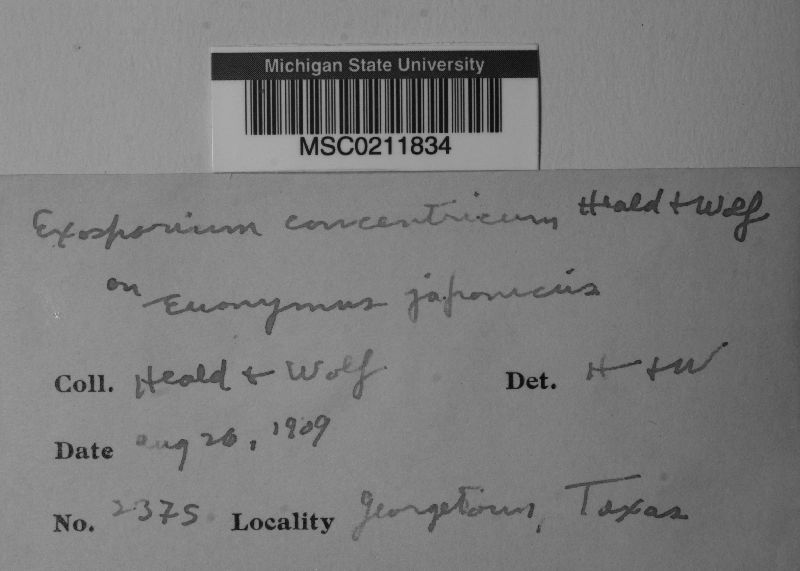 Michigan State University
MSC0211834
Exosporium concentricum Heald + Wolf
on Euonymus japonicus
Coll. Heald + Wolf Det. H + W
Date Aug 26, 1909
No. 2375 Locality Georgetown, Texas